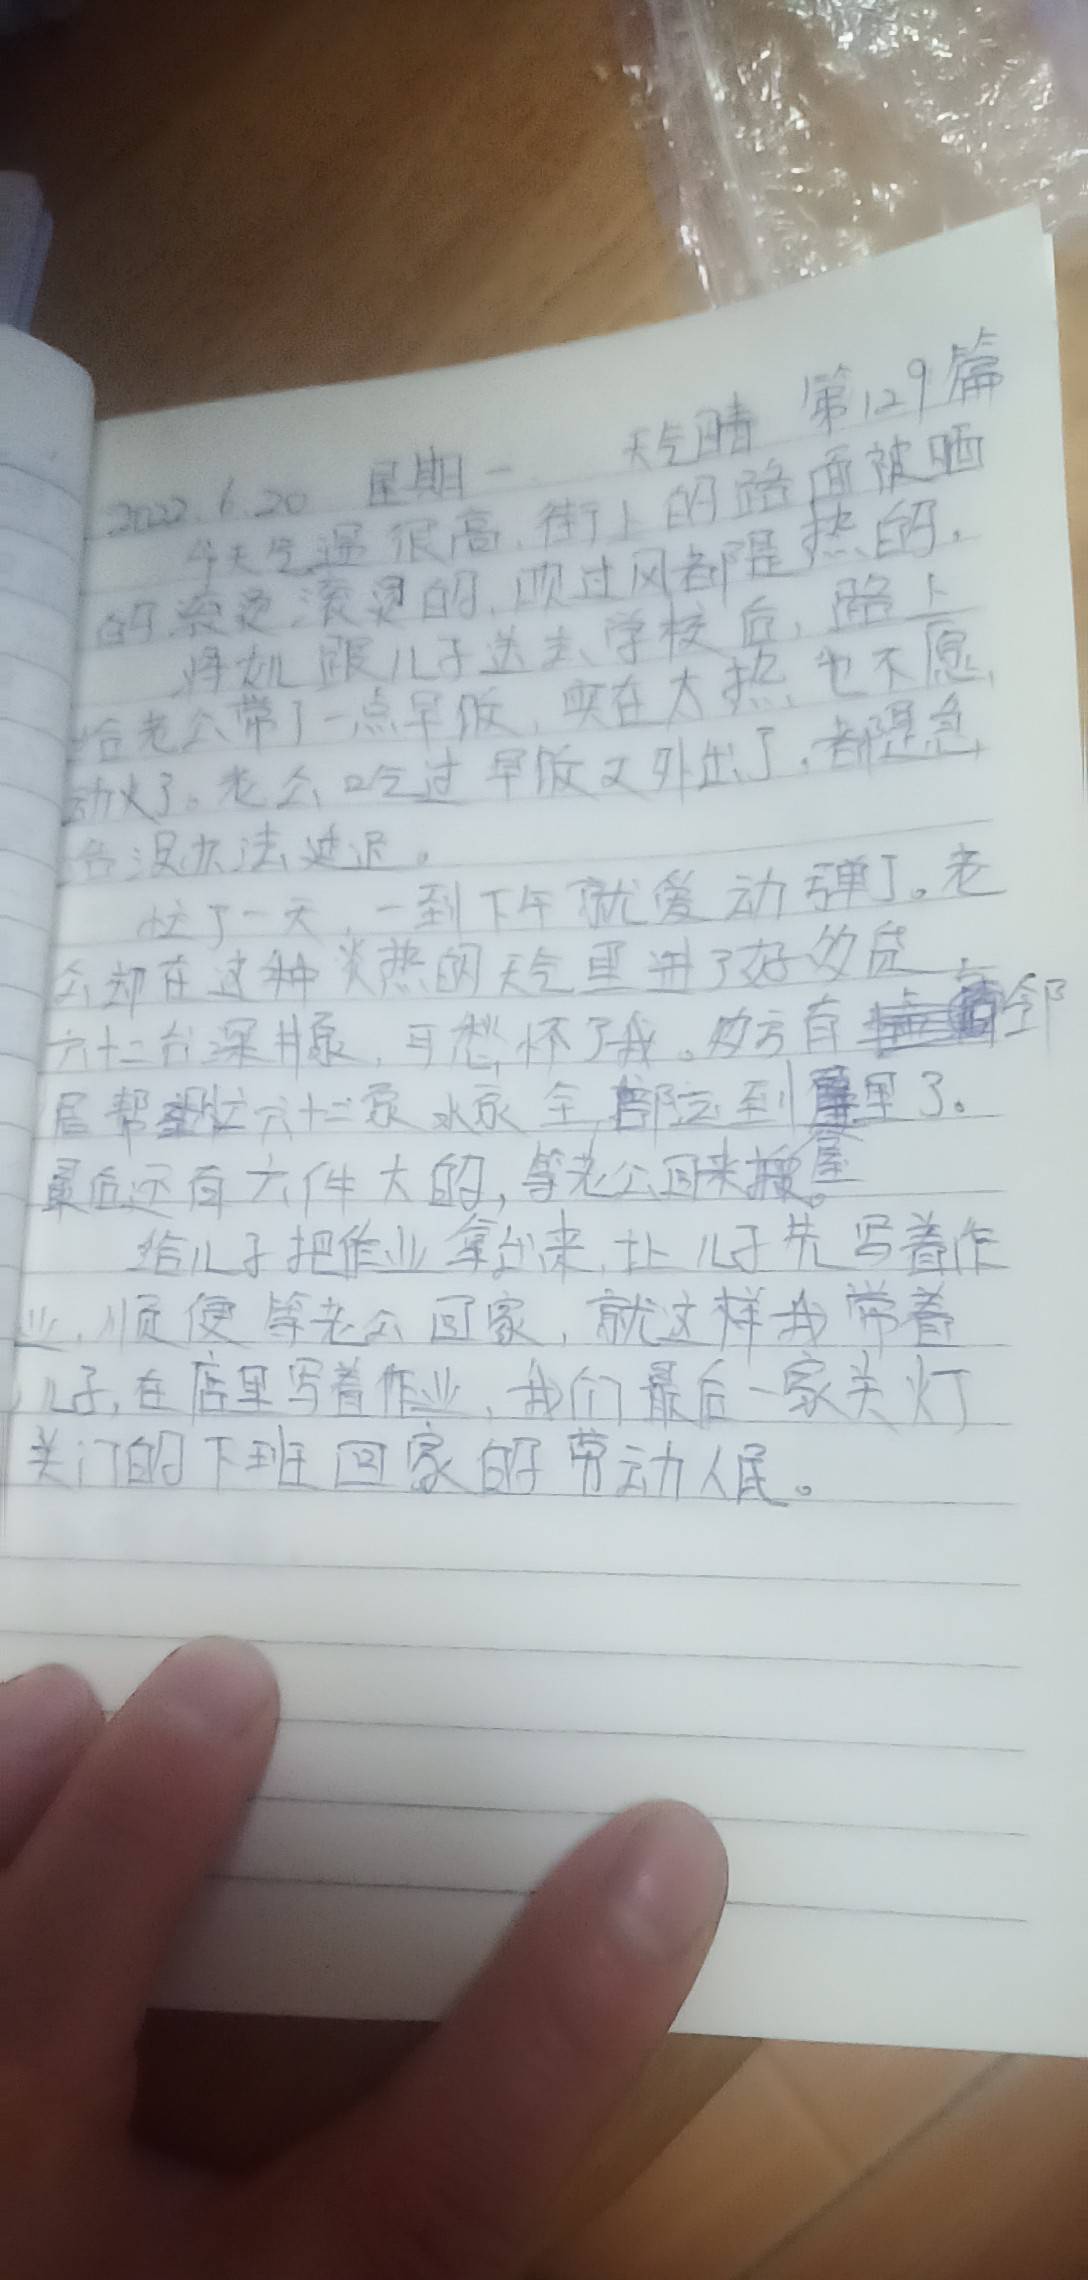 第129篇
2022.6.20 星期一 天气晴
今天气温很高,街上的路面被晒
的滚烫滚烫的,吹过风都是热的,
将女儿跟儿子送去学校后,路上
给老公带了一点早饭,实在太热,也不愿
动火了。老公吃过早饭又外出了,都是急
没办法延迟。
忙了一天,一到下午就爱动弹了。老
公却在这种炎热的天气里进了好多货,
六十二台深井泵,可愁坏了我。多亏有邻
居帮忙六十二泵水泵全部运到屋里了。
最后还有六件大的,等老公回来搬。
给儿子把作业拿出来,让儿子先写着作
业,顺便等老公回家,就这样我带着
儿子,在店里写着作业,我们最后一家关灯
关门的下班回家的劳动人民。